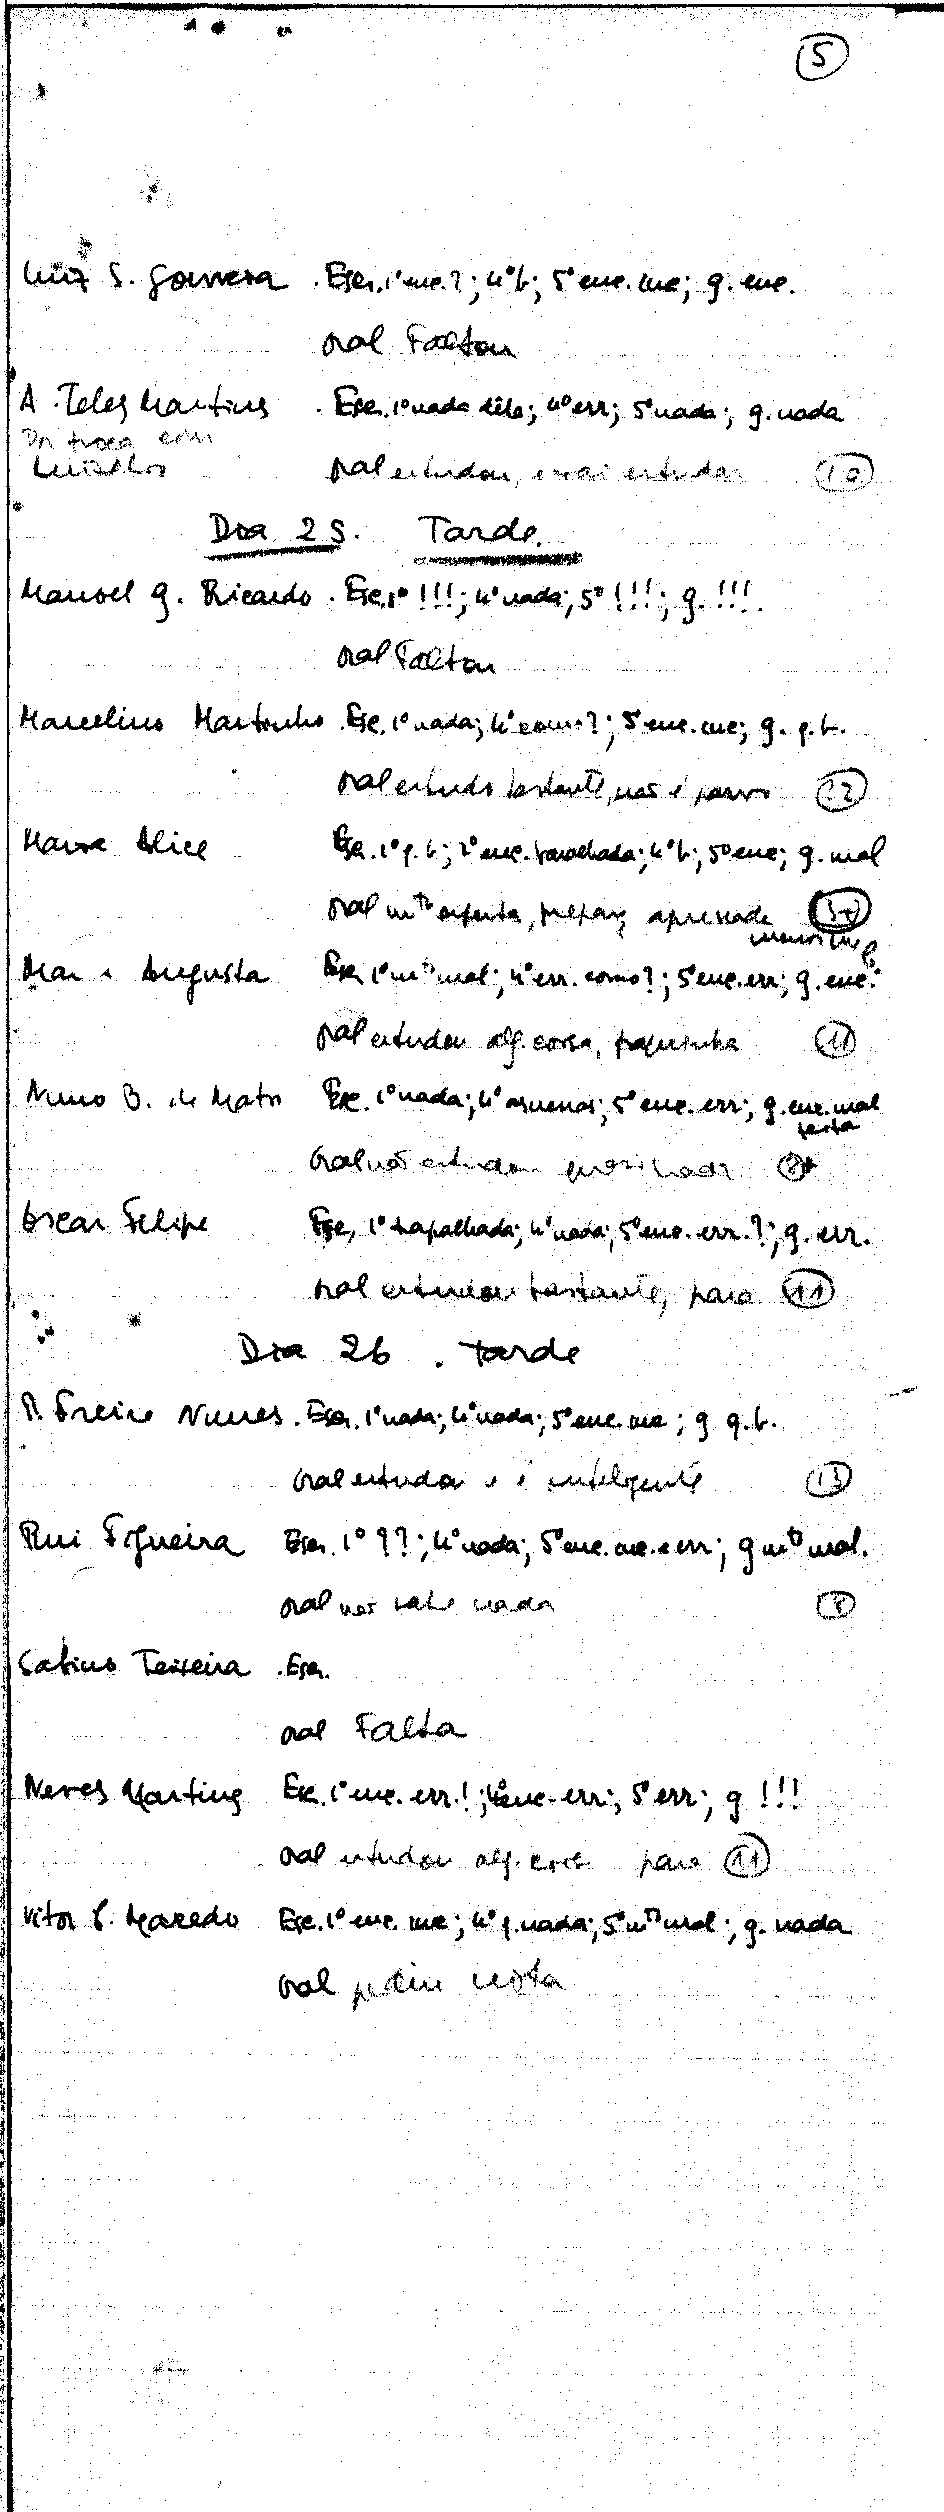 5
Luiz S. Gouveia . Escr. 1º enc.?; 4º b; 5º enc. inc; g. enc.
oral Faltou
A. Teles Martins . Escr. 1º nada dêle; 4º err; 5º nada; g. nada
Por troca com
oral estudou, estudar 10
Dia 25. Tarde.
Manoel G. Ricardo . Esc. 1º !!!; 4º nada; 5º !!!; g. !!!.
oral Faltou
Marcelino Martinho . Esc. 1º nada; 4º como?; 5º enc. inc; g. q.b.
oral estudo bastante, não é parvo 12
Maria Alice Esc. 1º q.b; 2º enc. baralhada; 4º b; 5º enc; g. mal
oral mtº esperta, apressada
Maria Augusta Esc. 1º mtº mal; 4º err. como?; 5º enc. err; g. enc.
oral estudou alg. coisa, 11
Nuno B. de Matos Esc. 1º nada; 4º apenas; 5º enc. err; g. enc. mal
oral não estudou 8
Oscar Felipe Esc, 1º trapalhada; 4º nada; 5º enc. err.?; g. err.
oral estudou bastante, para 11
Dia 26 . Tarde
R. Freire Nunes . Escr. 1º nada; 4º nada; 5º enc. inc; g q.b.
oral estudou e é inteligente 13
Rui Figueira Escr. 1º ??; 4º nada; 5º enc. inc. e err; g mtº mal.
oral não sabe nada 8
Sabino Teixeira . Escr.
oral Falta
Neves Martins Esc. 1º enc. err.!; 4º enc. err; 5º err; g !!!
oral estudou alg. cois para 11
Vitor S. Macedo Esc. 1º enc. inc; 4º q. nada; 5º mtº mal; g. nada
oral pediu nota